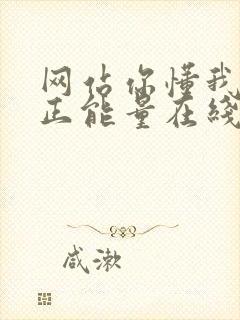 网站你懂我
正能量在线
咸漱